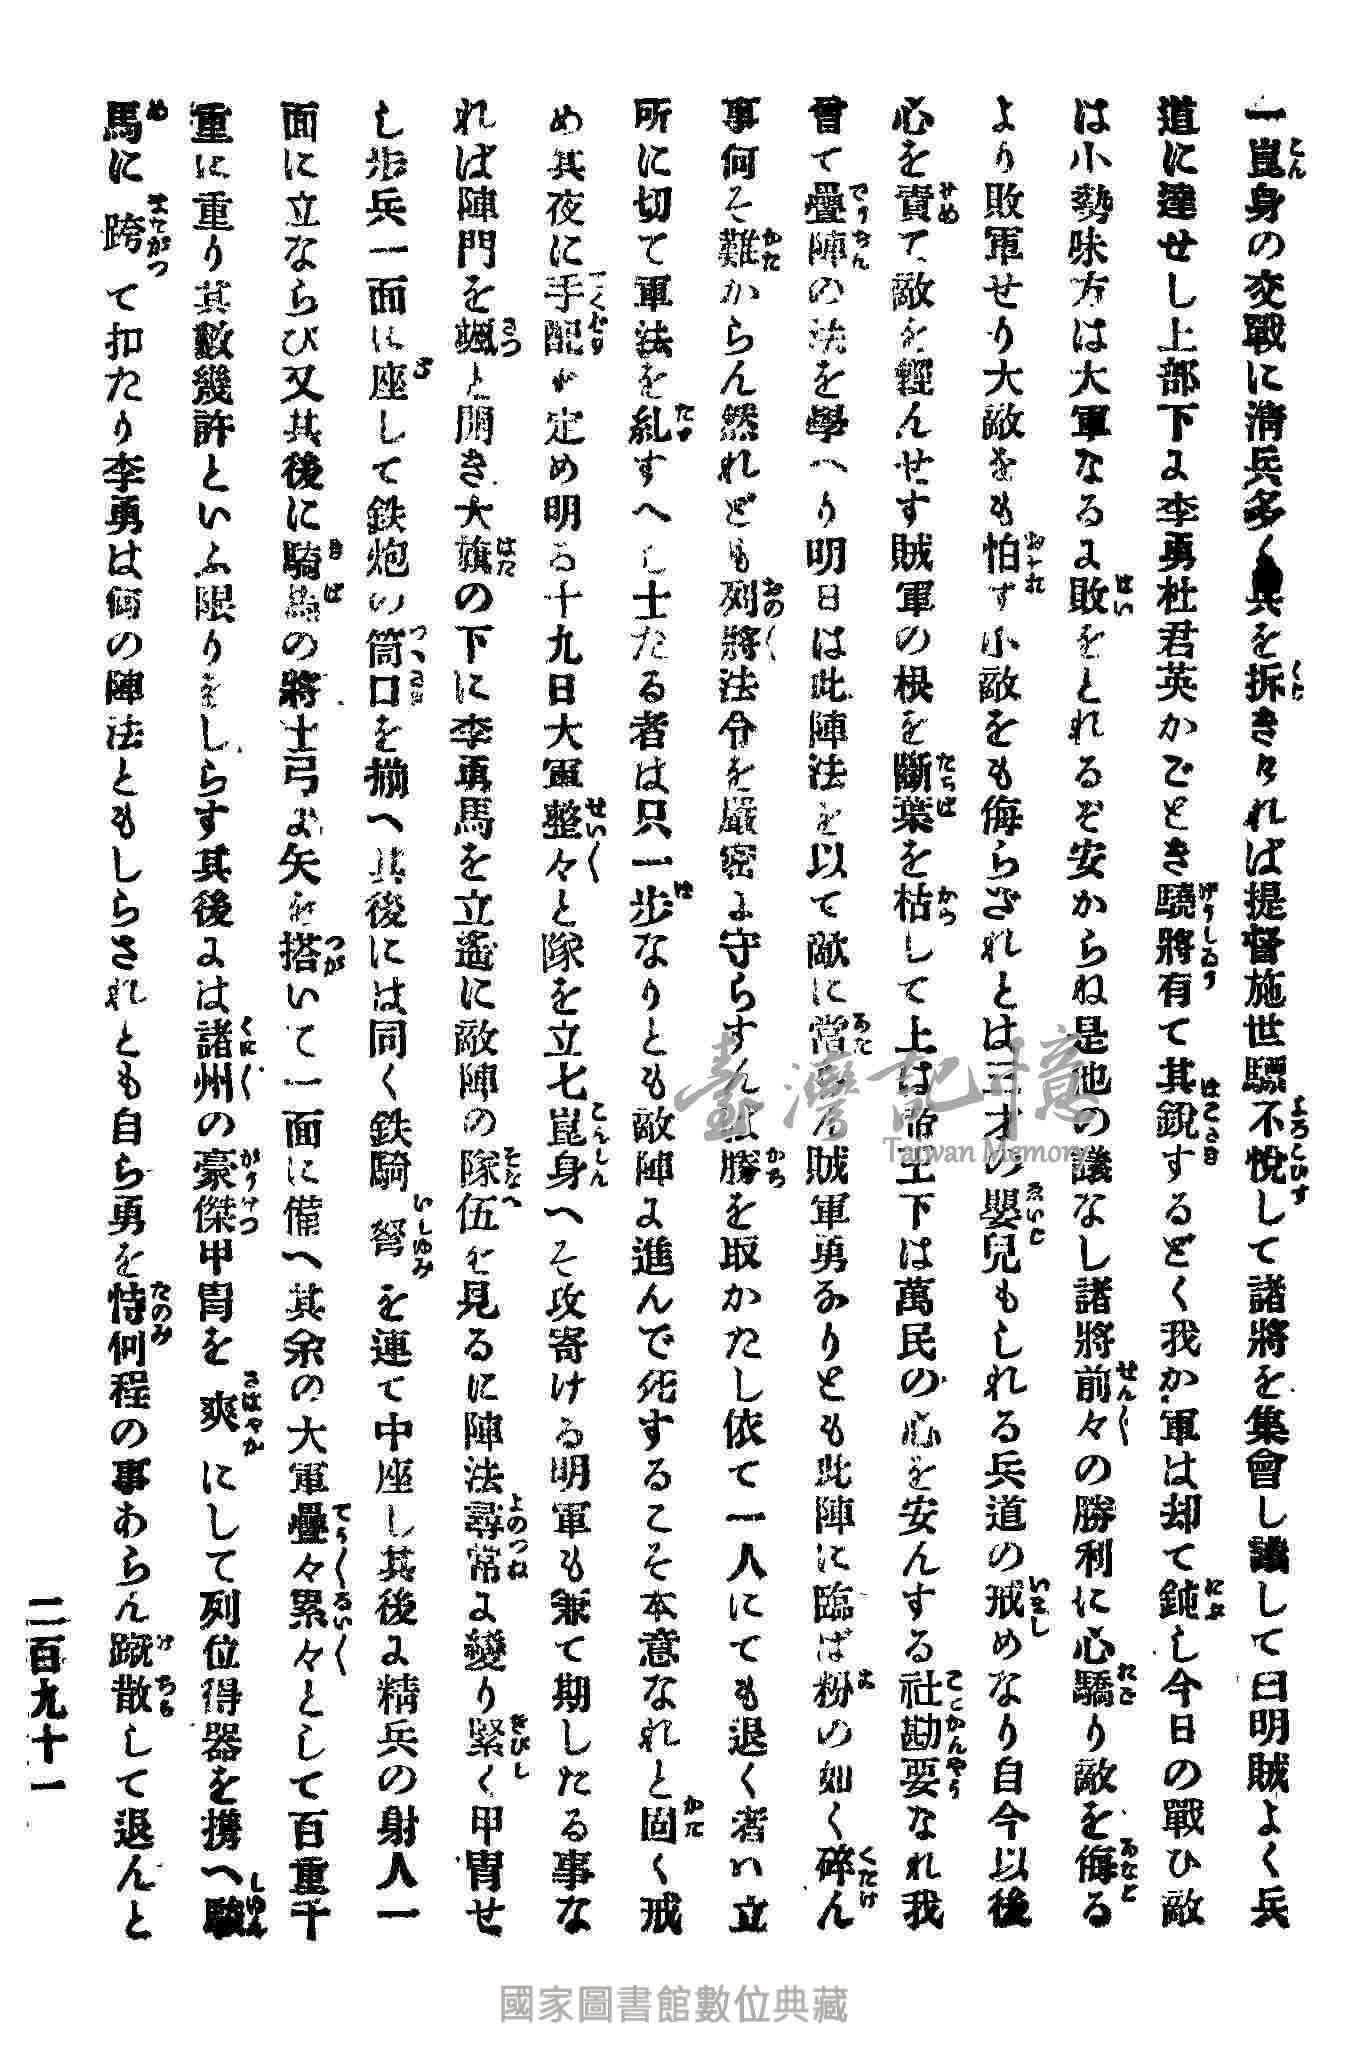 一崑身の交戰に淸兵多く兵を拆きければ提督施世驃不悅して諸將を集會し議して曰明賊よく兵
道に達せし上部下に李勇杜君英かごとき驍將有て其銳するどく我か軍は却て鈍し今日の戰ひ敵
は小勢味方は大軍なるに敗をとれるぞ安からね是他の議なし諸將前々の勝利に心驕り敵を侮る
より敗軍せり大敵をも怕ず小敵をも侮らざれとは三才の嬰兒もしれる兵道の戒めなり自今以後
心を責て敵を輕んせす賊軍の根を斷葉を枯して上は帝王下は萬民の心を安んする社勘要なれ我
曾て疊陣の法を學へり明日は此陣法を以て敵に當る賊軍勇なりとも此陣に臨ば粉の如く碎ん
事何そ難からん然れども列將法令を嚴密に守らすんは勝を取かたし依て一人にても退く者ハ立
所に切て軍法を糺すへし士たる者は只一步なりとも敵陣に進んで死するこそ本意なれと固く戒
め其夜に手配が定め明る十九日大軍整々と隊を立七崑身へそ攻寄ける明軍も兼て期したる事な
れば陣門を颯と開き大旗の下に李勇馬を立遙に敵陣の隊伍を見るに陣法尋常に變り緊く甲冑せ
し步兵一面に座して鉄炮の筒口を揃へ其後には同く鉄騎弩を連て中座し其後に精兵の射人一
面に立ならび又其後に騎馬の將士弓に矢を搭いて一面に備へ其余の大軍疊々累々として百重千
重に重り其數幾許といふ限りをしらす其後には諸州の豪傑甲冑を爽にして列位得器を携へ駿
馬に跨て扣たり李勇は何の陣法ともしらされとも自ら勇を恃何程の事あらん蹴散して退んと
二百九十一
臺灣記憶
Taiwan Memory
國家圖書館數位典藏